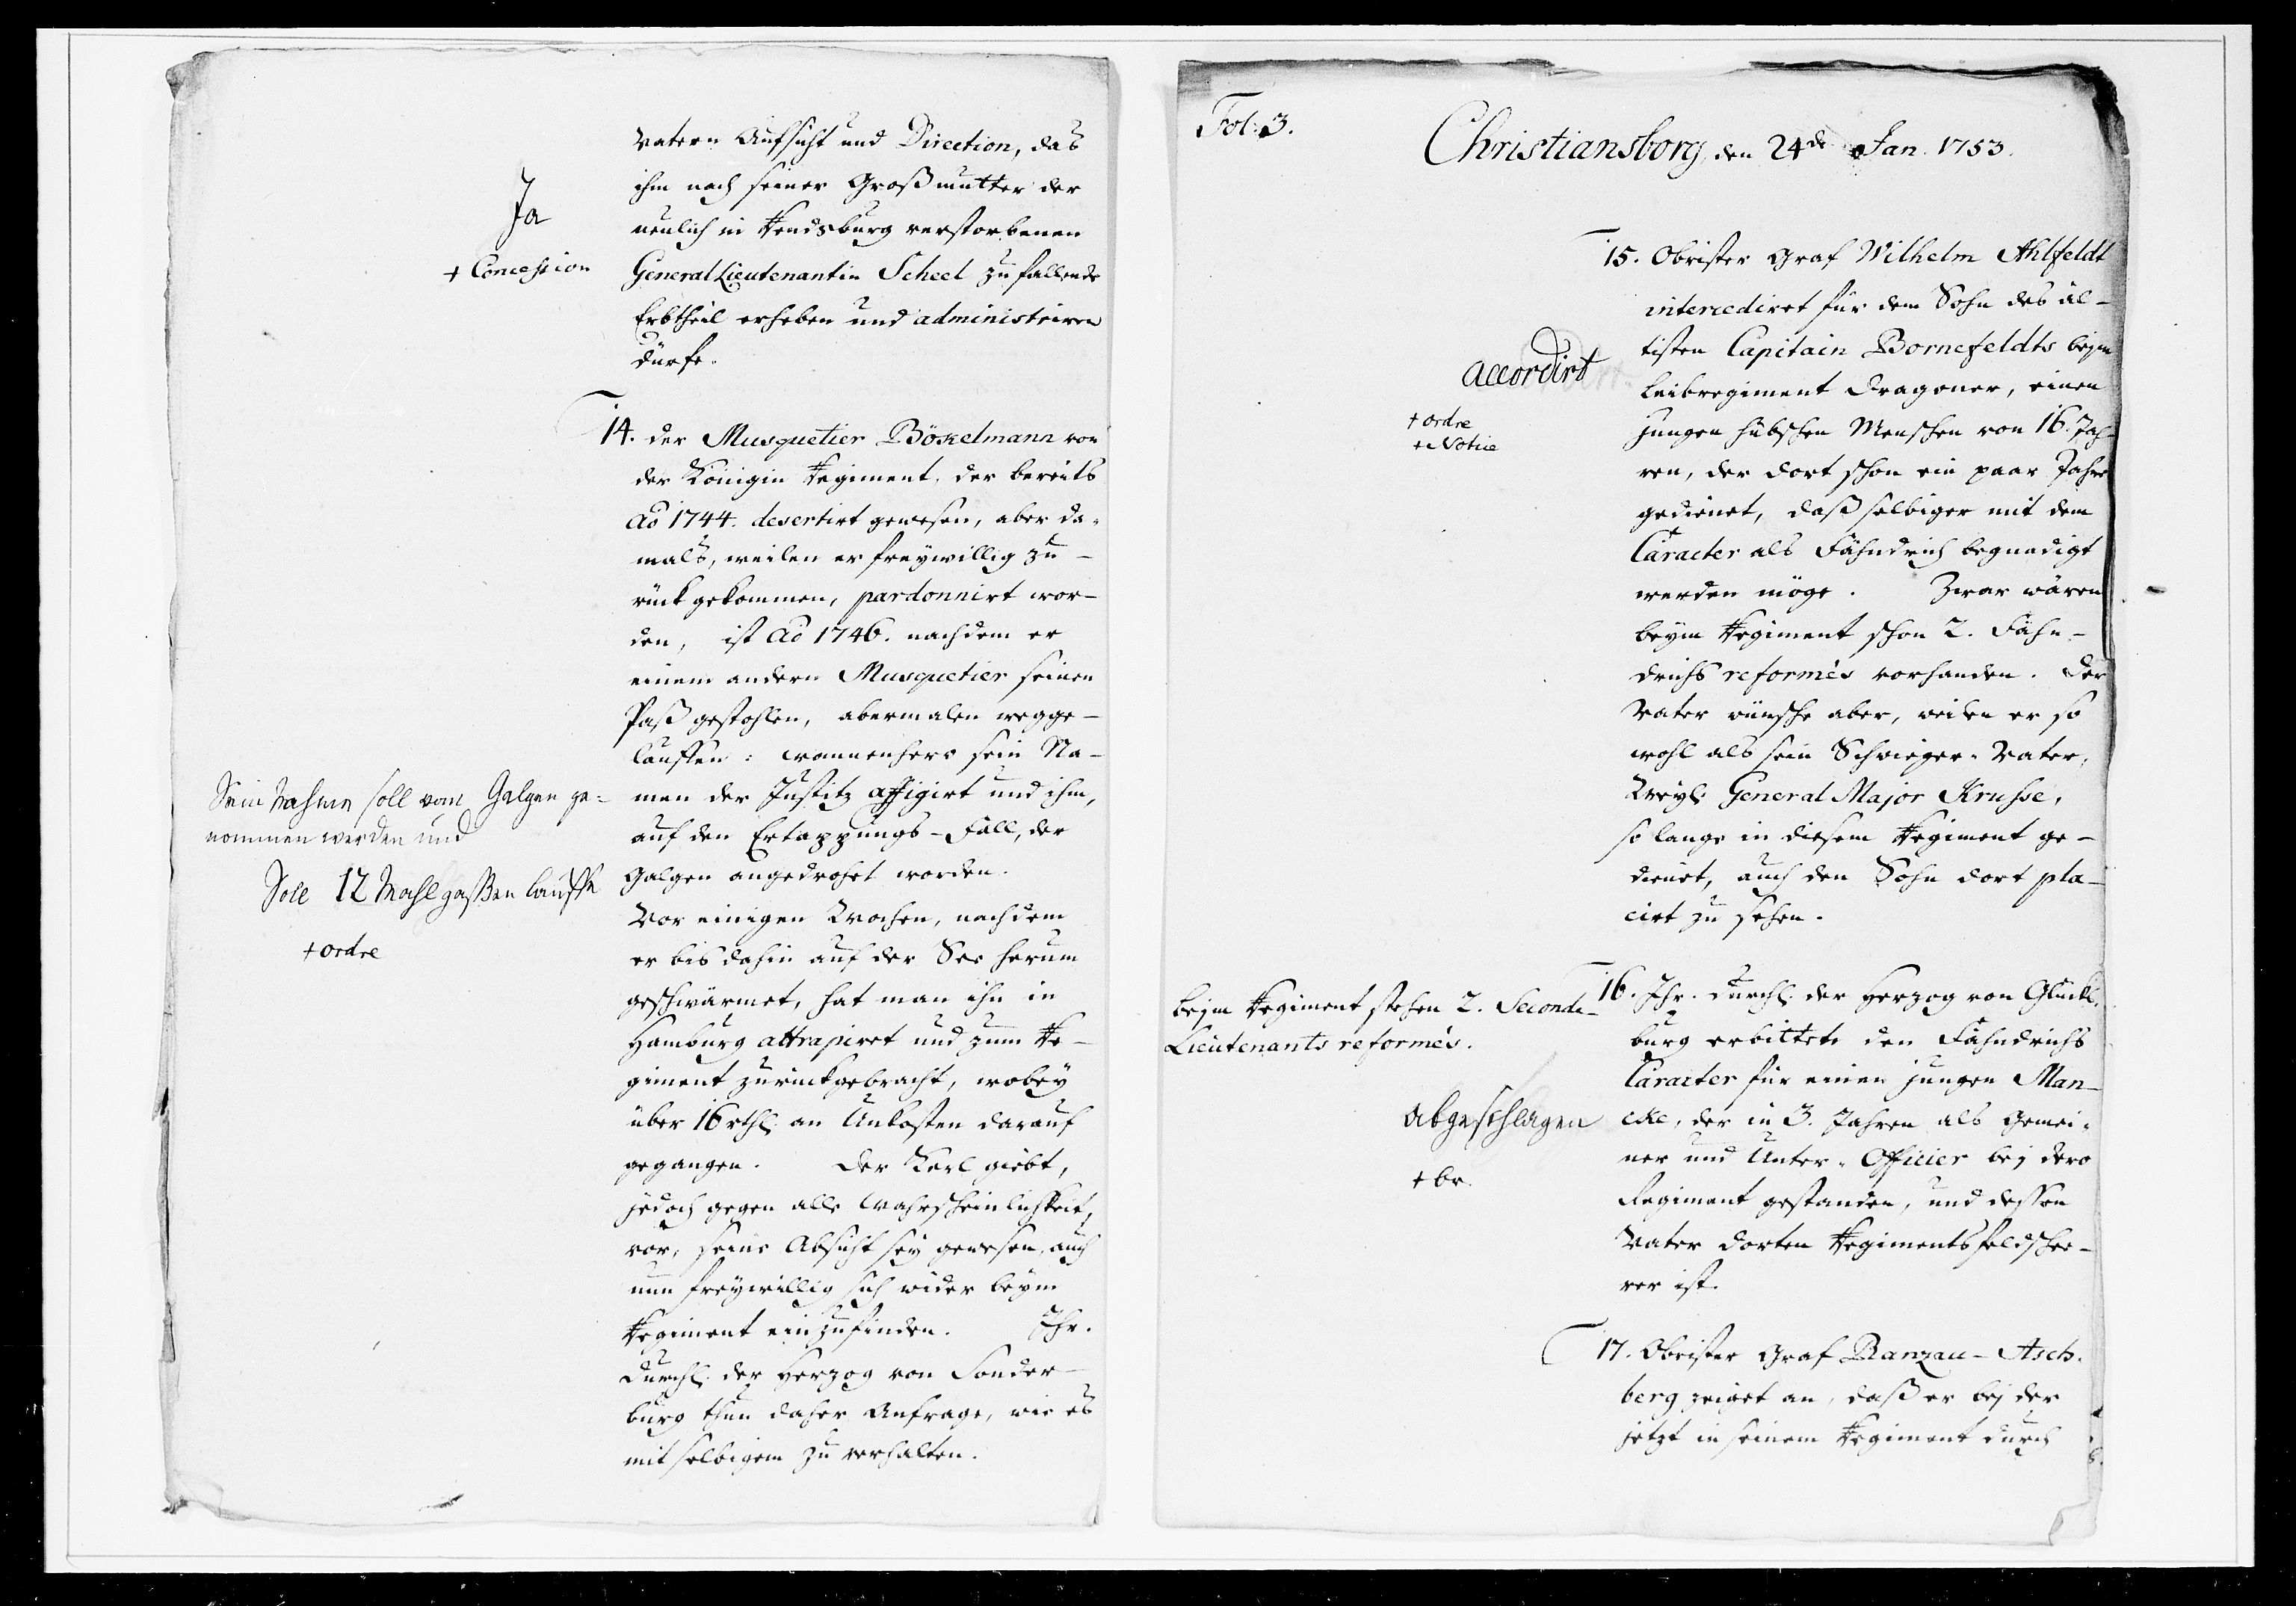 Vatern Aufsicht und Direction, das
ihm nach seiner Großmutter der
neulich in Rendsburg verstorbenen
General Lieutenantin Scheel zufallende
Erbtheil erheben und administriren
dürfe.
Ja
+ Concession
14. Der Musquetier Böckelmann von
der Königin Regiment, der bereits
Ao 1744. desertirt gewesen, aber da-
mals, weilen er freywillig zu-
rück gekommen, pardonnirt wor-
den, ist Ao 1746. nachdem er
einem andern Musquetier seinen
Paß gestohlen, abermalen wegge-
lauffen: wannenhero sein Na-
men der Justitz affigirt und ihm,
auf den Ertappungs-Fall, der
Galgen angedrohet worden.
Vor einigen Wochen, nachdem
er bis dahin auf der See herum
geschwärmet, hat man ihn in
Hamburg attrapiret und zum Re-
giment zurückgebracht, wobey
über 16 rthl. an Unkosten darauf
gegangen. Der Kerl giebt,
jedoch gegen alle Wahrscheinlichkeit,
vor, seine Absicht sey gewesen, auch
nun freywillig sich wider beym
Regiment einzufinden. Ihr.
Durchl. der Herzog von Sonder-
burg thun daher Anfrage, wie es
mit selbigem zu verhalten.
Sein Nahme soll vom Galgen ge-
nommen werden und
Soll 12 Mahl gassen lauffen
+ ordre
Fol. 3.
Christiansborg, den 24de Jan. 1753.
15. Obrister Graf Wilhelm Ahlfeldt
intercediret für dem Sohn des äl-
tisten Capitain Bornefeldts bejm
Leibregiment Dragoner, einen
jungen hübschen Menschen von 16. Jah-
ren, der dort schon ein paar Jahre
gedienet, daß selbiger mit dem
Caracter als Fähndrich begnadigt
werden möge. Zwar wären
beym Regiment schon 2. Fähn-
drichs reformés vorhanden. Der
Vater wünsche aber, weilen er so
wohl als sein Schwieger-Vater,
Weyl. General Major Krusse,
so lange in diesem Regiment ge-
dienet, auch den Sohn dort pla-
cirt zu sehen.
accordirt
+ ordre
+ Notice
16. Ihr. Durchl. der Herzog von Glücks-
burg erbittet den Fähndrichs
Caracter für einen jungen Man-
cke, der in 3. Jahren als Gemei-
ner und Unter-Officier bej dero
Regiment gestanden, und dessen
Vater dorten Regimentsfeldschee-
rer ist.
bejm Regiment stehen 2. Seconde-
Lieutenants reformés.
abgeschlagen
+ br.
17. Obrister Graf Ranzau-Asch-
berg zeiget an, daß er bej der
jetzt in seinem Regiment durch